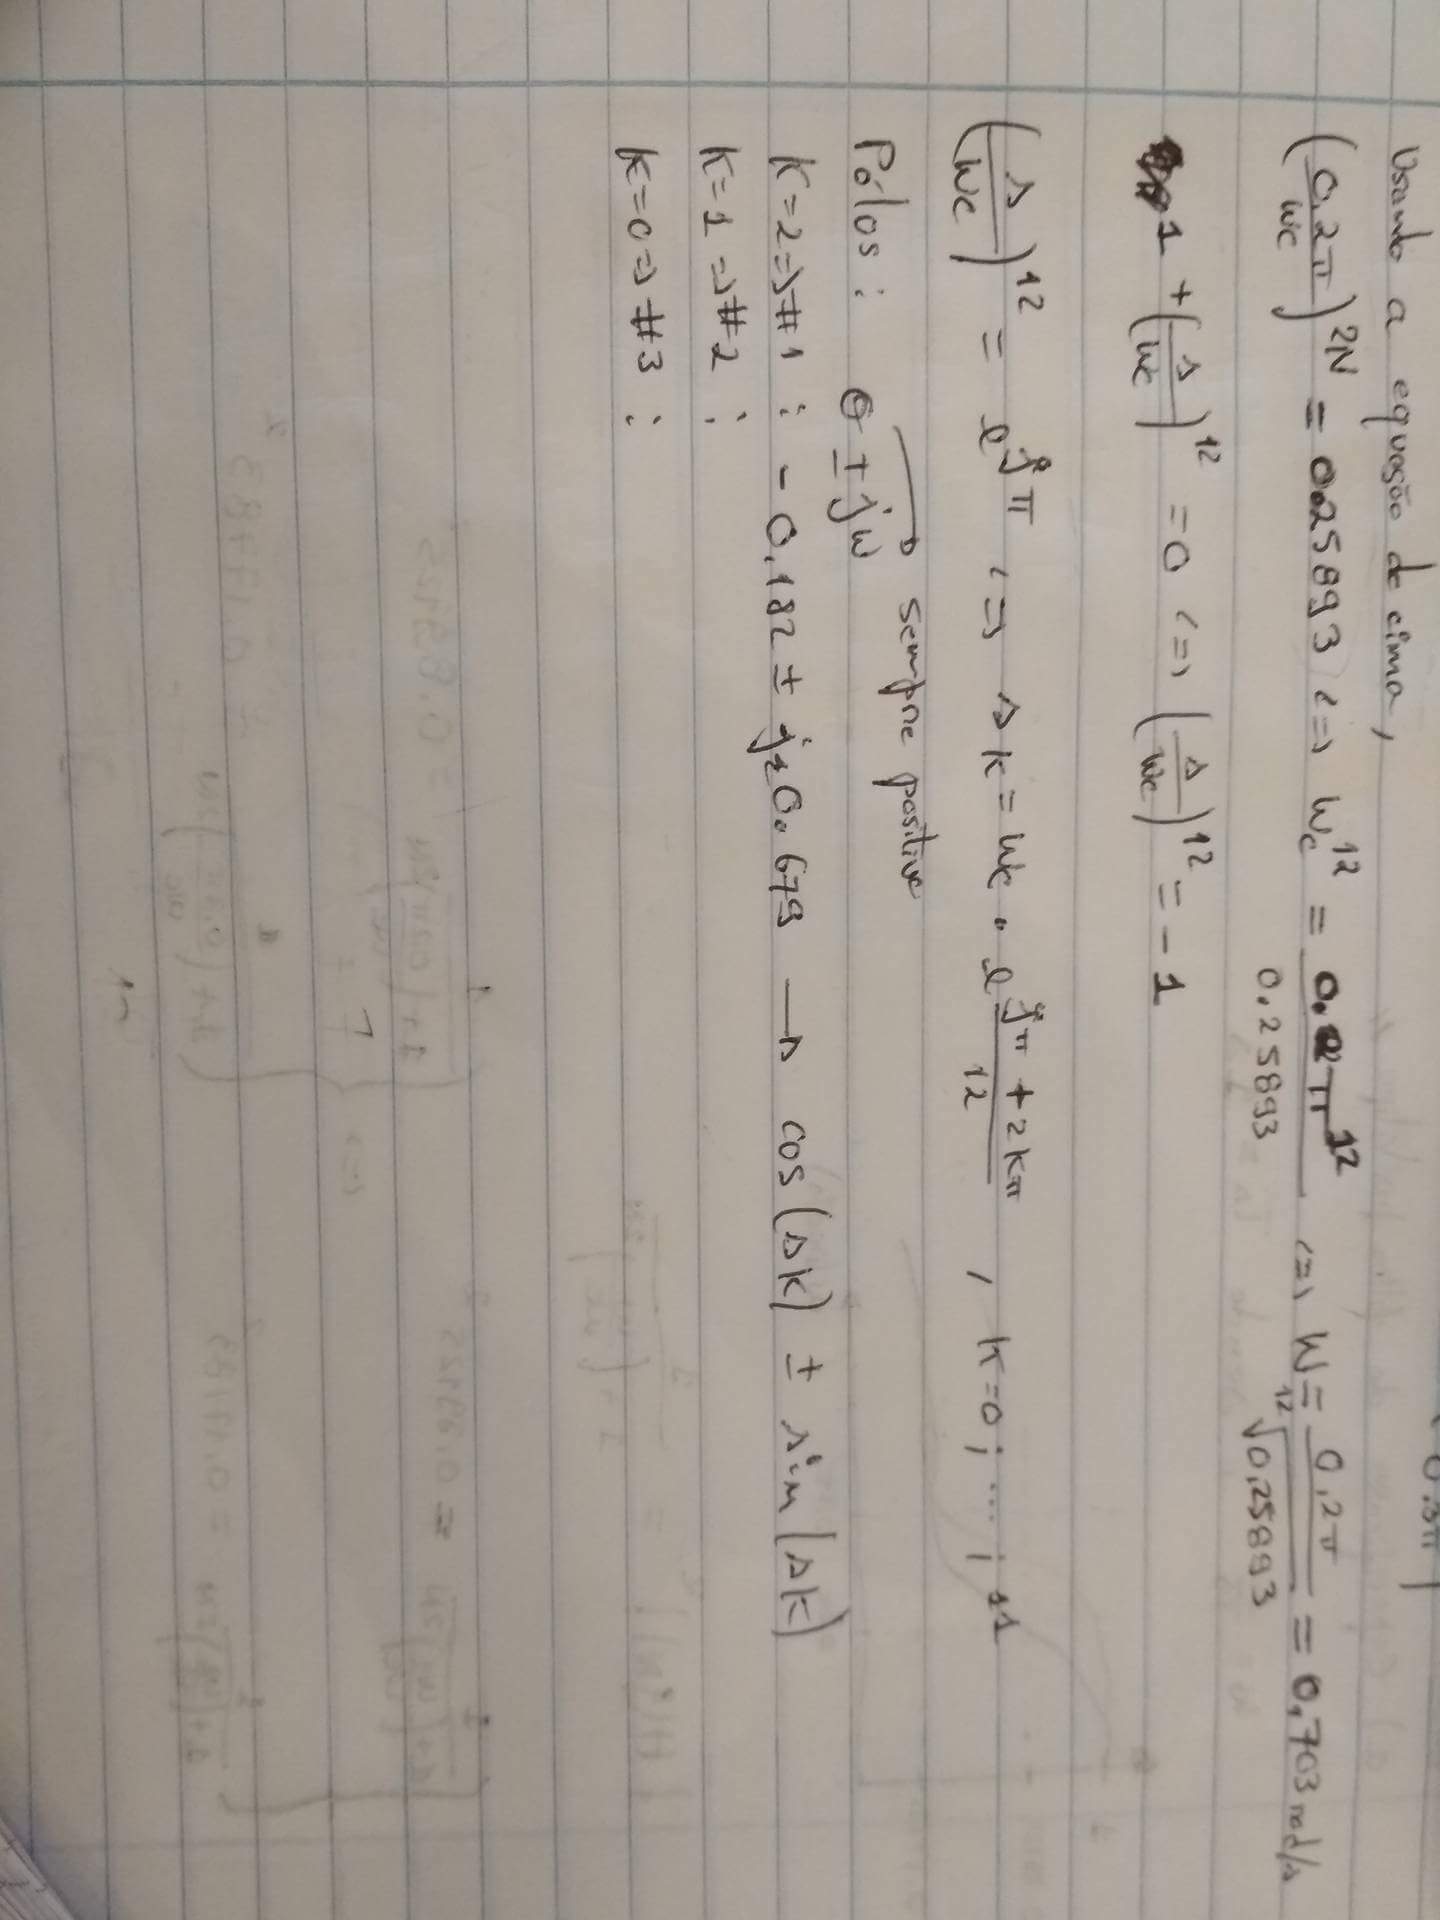 Usando a equação de cima,
(0.2π/wc)^2N = 0.25893 <=> wc^12 = 0.2π^12/0.25893 <=> w = 0,2π/12√0,25893 = 0,703 rad/s
1 + (s/wc)^12 = 0 <=> (s/wc)^12 = -1
(s/wc)^12 = e^jπ <=> sk = wc . e^jπ + 2kπ/12 , k=0; ... ; 11
sempre positive
Pólos : σ ± jw
K=2 => #1 : - 0,182 ± j 0.679 → cos(sk) ± sin(sk)
K=1 => #2 :
K=0 => #3 :